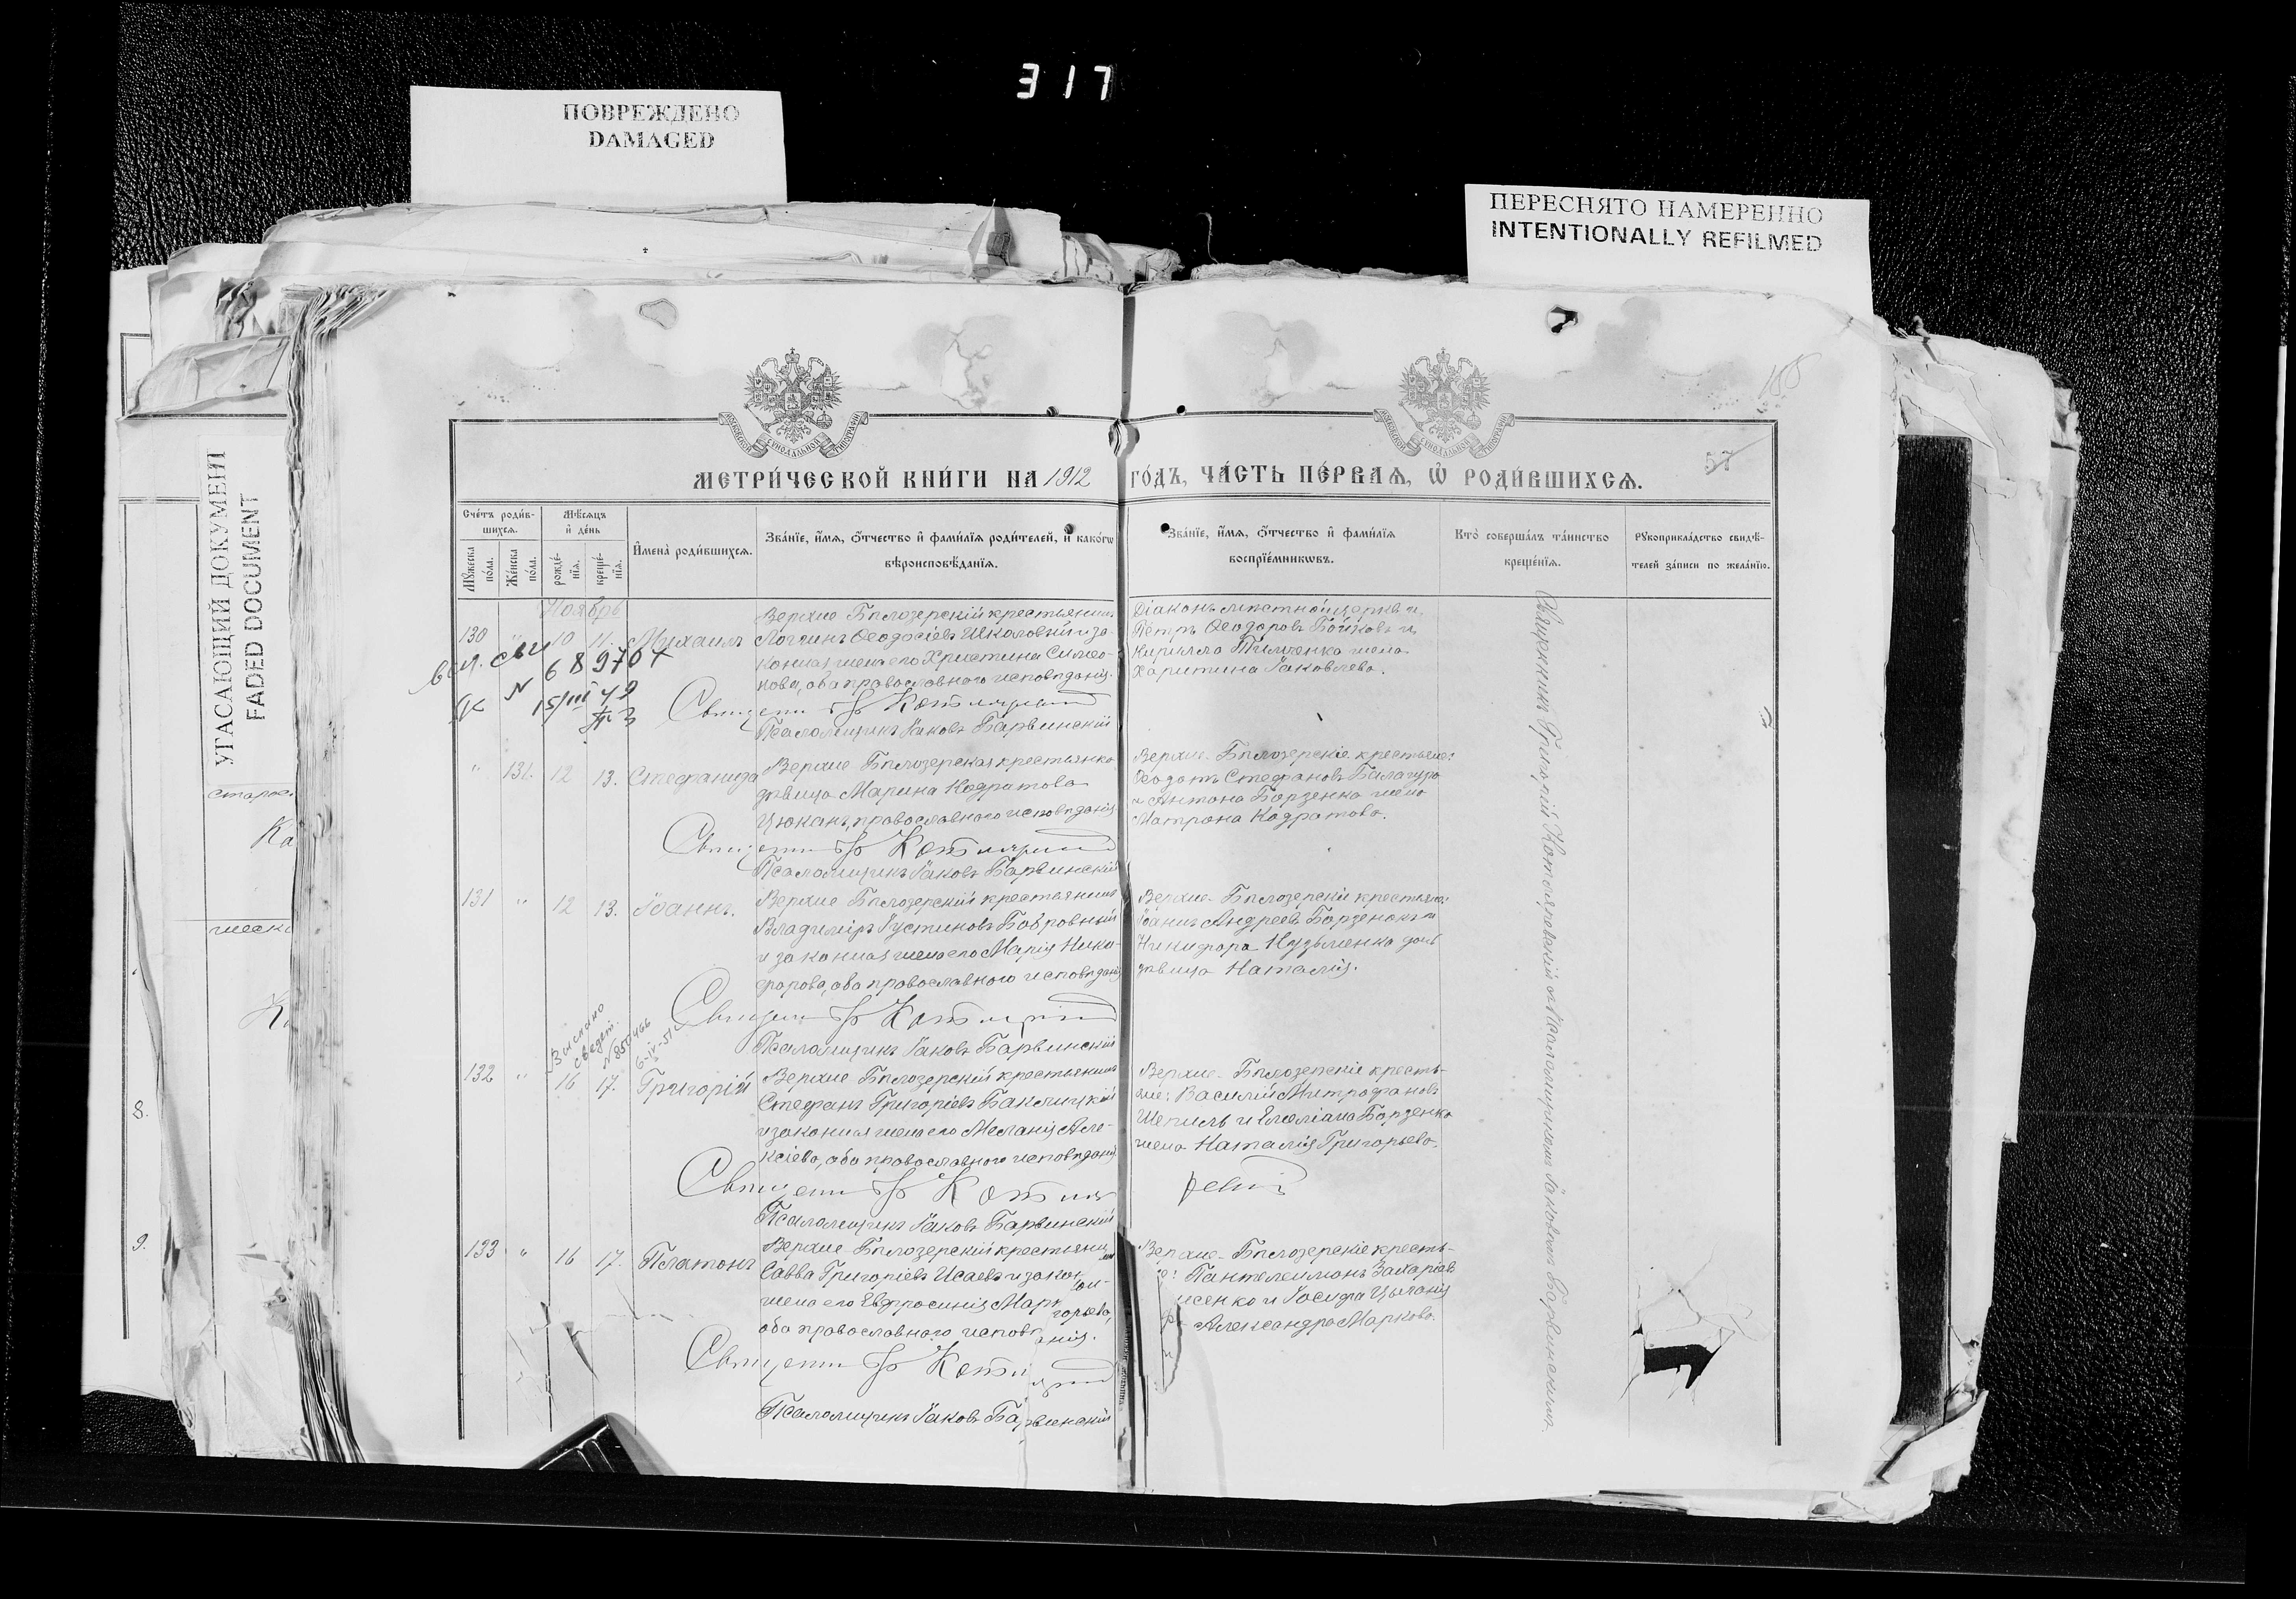 317
ПОВРЕЖДЕНО
DAMAGED
ПЕРЕСНЯТО НАМЕРЕННО
INTENTIONALLY REFILMED
УГАСАЮЩИЙ ДОКУМЕНТ
FADED DOCUMENT
8.
9.
188
57
МЕТРИ́ЧЕСКОЙ КНИ́ГИ НА 1912 ГО́ДЪ, ЧА́СТЬ ПЕ́РВАЯ, Ѿ РОДИ́ВШИХСЯ.
Сче́тъ роди́в-
шихся.
Мѣ́сяцъ
и҆ де́нь
Мꙋ́жеска
по́ла.
Же́нска
по́ла.
рожде́-
нїя.
креще́-
нїя.
И҆мена̀ роди́вшихся.
Зва́нїе, и҆́мя, ѻ҆́тчество и҆ фами́лїя роди́телей, и҆ како́гѡ
вѣроисповѣ́данїя.
Зва́нїе, и҆́мя, ѻ҆́тчество и҆ фами́лїя
воспрїе́мникѡвъ.
Кто̀ соверша́лъ та́инство
креще́нїя.
Рꙋкоприкла́дство свидѣ́-
телей за́писи по жела́нїю.
Ноябрь
130 " 10 11. Михаилъ
Верхне Бѣлозерскій крестьянинъ
Логгинъ Ѳеодосіевъ Школовый и за-
конная жена его Христина Симео-
нова, оба православного исповѣданія.
Священ Гр Котляревскій
Псаломщикъ Іаковъ Барвинскій
Діаконъ мѣстной церкви
Петръ Ѳеодоровъ Бойковъ и
Кирилла Тимченка жена
Харитина Іаковлева.
689704
" 131. 12 13. Стефанида
Верхне Бѣлозерская крестьянка
дѣвица Марина Кодратова
Цюканъ, православного исповѣданія
Священ Гр Котляревскій
Псаломщикъ Іаковъ Барвинскій
Верхне-Бѣлозерскіе крестьяне:
Ѳеодотъ Стефановъ Балагура
и Антона Борзенка жена
Матрона Кодратова.
131 " 12 13. Іоаннъ.
Верхне Бѣлозерскій крестьянинъ
Владиміръ Іустиновъ Бобровный
и законная жена его Марія Ники-
форова, оба православного исповѣданія
Священ Гр Котляревскій
Псаломщикъ Іаковъ Барвинскій
Верхне-Бѣлозерскіе крестьяне:
Іоаннъ Андреевъ Борзенокъ и
Никифора Кузьменка дочь
дѣвица Наталія.
Выслано
сведет.
132 " 16 17. Григорій
Верхне Бѣлозерскій крестьянинъ
Стефанъ Григоріевъ Баклицкій
и законная жена его Меланія Але-
ксіева, оба православного исповѣданія
Священ Гр Котля ревскій
Псаломщикъ Іаковъ Барвинскій
Верхне-Бѣлозерскіе кресть-
яне: Василій Митрофановъ
Шепиль и Емеліана Борзенка
жена Наталія Григорьева.
133 " 16 17. Платонъ
Верхне Бѣлозерскій крестьянинъ
Савва Григоріевъ Исаевъ и закон
жена его Евфросинія Марк горьева,
оба православного исповѣ анія.
Священ Гр Котляревскій
Псаломщикъ Іаковъ Барвинскій
Верхне-Бѣлозерскіе кресть-
Пантелеимонъ Захаріевъ
сенко и Іосифа Цыганія
Александра Маркова.
Священникъ Григорій Котляревскій съ Псаломщикомъ Іаковомъ Барвинскимъ.